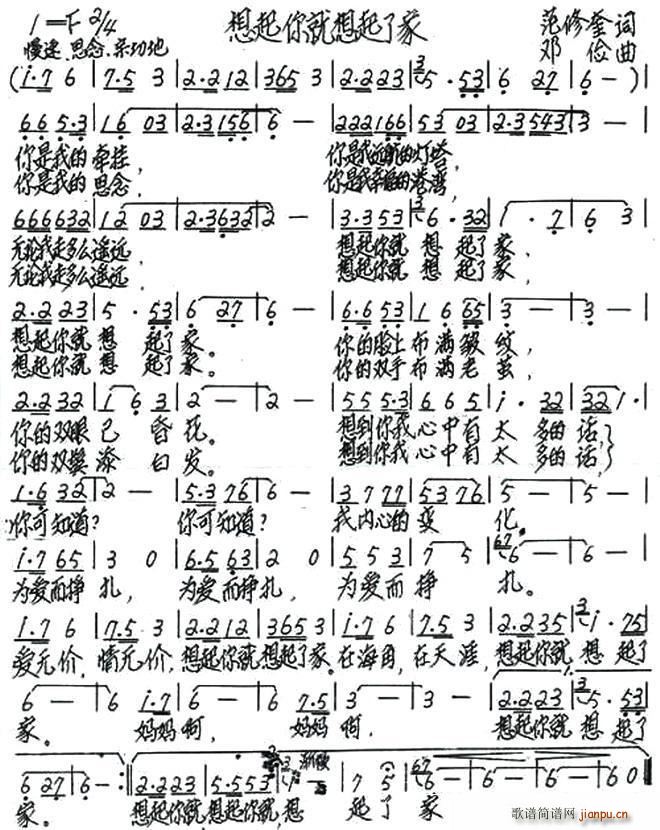 1=F 2/4 想起你就想起了家 范修奎 词
慢速、思念、亲切地 邓 俭 曲
(i·7 6 | 7·5 3 | 2·2 1 2 | 3 6 5 3 | 2·2 2 3 | 5·5 3 | 6 2 7 | 6 — ) |
6 6 5·3 | 1 6 0 3 | 2·3 1 5 6 | 6 — | 2 2 2 1 6 6 | 5 3 0 3 | 2·3 5 4 3 | 3 — |
你是我的牵挂, 你是我远航的灯塔,
你是我的思念, 你是我幸福的港湾,
6 6 6 6 3 2 | 1 2 0 3 | 2·3 6 3 2 | 2 — | 3·3 5 3 | 6·3 2 | 1·7 | 6 3 |
无论我走多么遥远, 想起你就想起了家,
无论我走多么遥远, 想起你就想起了家,
2·2 2 3 | 5·5 3 | 6 2 7 | 6 — | 6·6 5 3 | 1 6 6 5 | 3 — | 3 — |
想起你就想起了家。 你的脸上布满皱纹,
想起你就想起了家。 你的双手布满老茧,
2·2 3 2 | 1 6 3 | 2 — | 2 — | 5 5 5·3 | 6 6 5 | i·3 2 | 3 2 1· |
你的双眼已昏花。 想到你我心中有太多的话,
你的双鬓添白发。 想到你我心中有太多的话,
1·6 3 2 | 2 — | 5·3 7 6 | 6 — | 3 7 7 7 | 5 3 7 6 | 5 — | 5 — |
你可知道? 你可知道? 我内心的变化。
i·7 6 5 | 3 0 | 6·5 6 3 | 2 0 | 5 5 3 | 7 5 | 6 — | 6 — |
为爱而挣扎, 为爱而挣扎, 为爱而挣扎。
i·7 6 | 7·5 3 | 2·2 1 2 | 3 6 5 3 | i·7 6 | 7·5 3 | 2·2 3 5 | i·7 5 |
爱无价,情无价,想起你就想起了家。在海角,在天涯,想起你就想起了
6 — | 6 i·7 | 6 — | 6 7·5 | 3 — | 3 — | 2·2 2 3 | 5·5 3 |
家。 妈妈啊, 妈妈啊, 想起你就想起了
6 2 7 | 6 — :‖ 2·2 2 3 | 5·5 5 3 | 7 5 | 6 — | 6 — | 6 — | 6 0 ‖
家。 想起你就想起你就,想起了家
歌谱简谱网 jianpu.cn